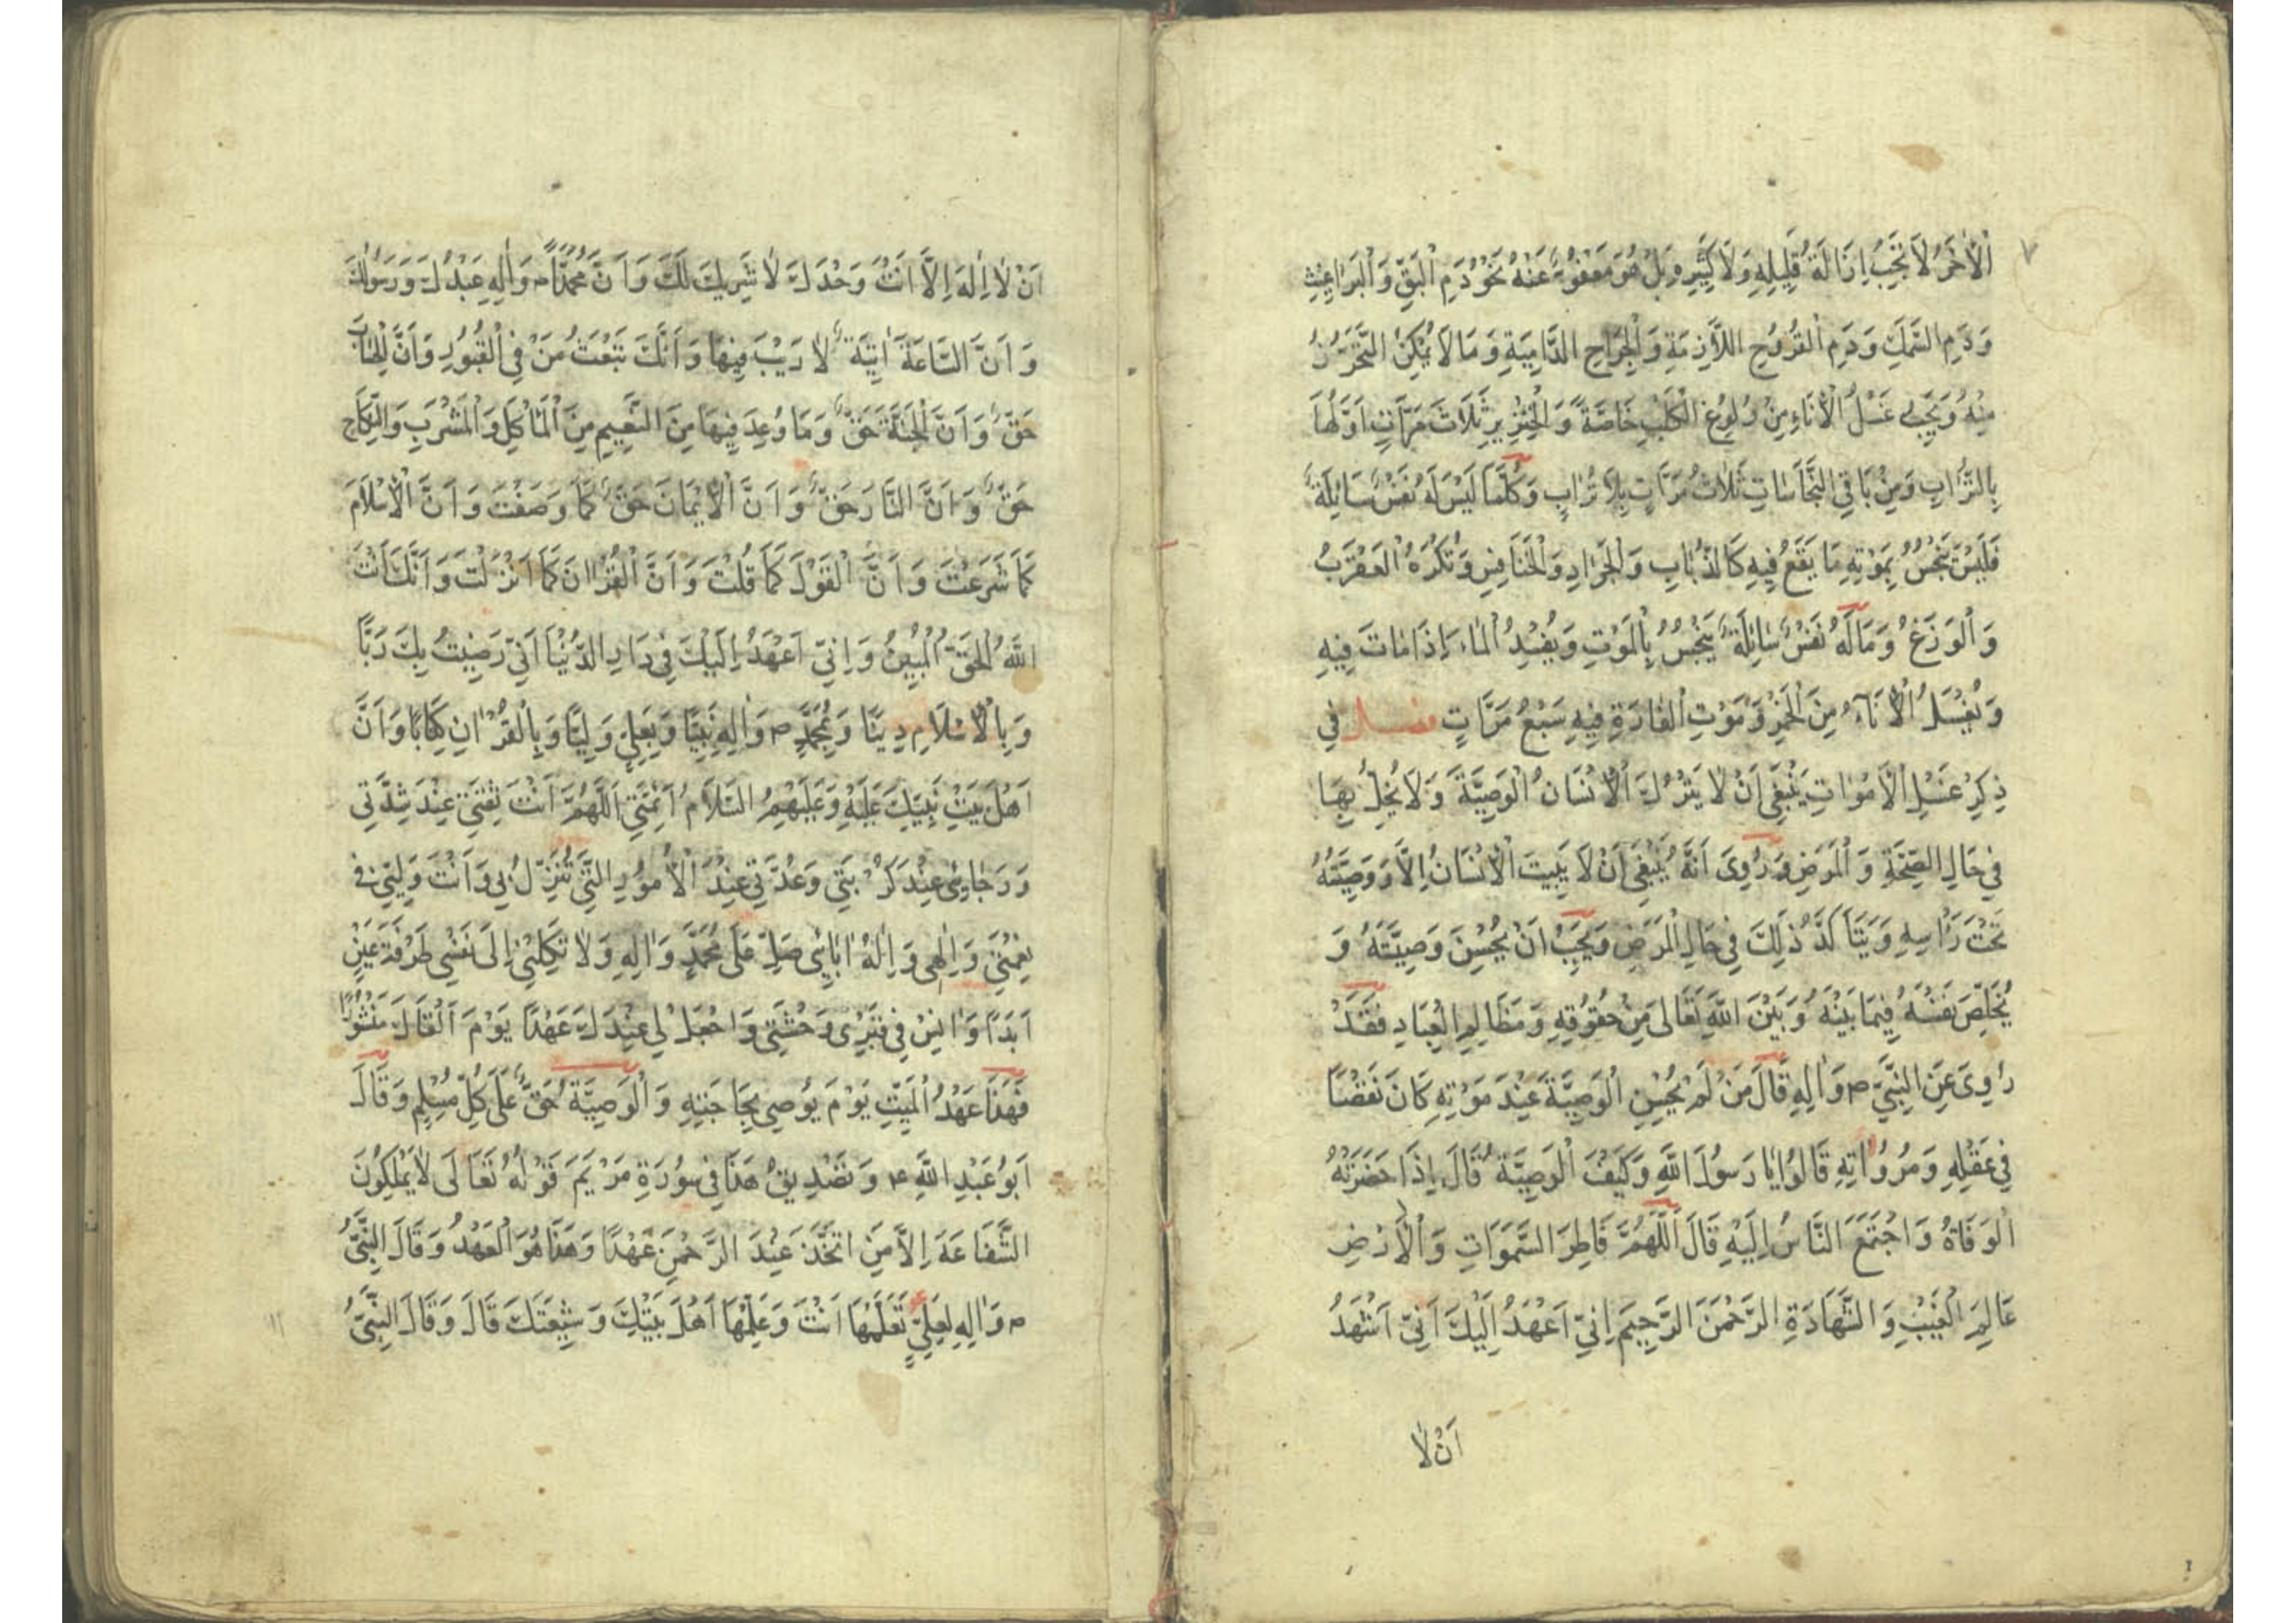 ٧
اَلْاٰخَرُ لَا تَجِبُ اِزَالَةُ قَلِيلِهِ وَلَا كَثِيرِهِ بَلْ هُوَ مَعْفُوٌّ عَنْهُ نَحْوُ دَمِ الْبَقِّ وَالْبَرَاغِيثِ
وَدَمِ السَّمَكِ وَدَمِ الْقُرُوحِ اللَّازِمَةِ وَالْجِرَاحِ الدَّامِيَةِ وَمَا لَا يُمْكِنُ التَّحَرُّزُ
مِنْهُ وَيَجِبُ غَسْلُ الْاِنَاءِ مِنْ وُلُوغِ الْكَلْبِ خَاصَّةً وَالْخِنْزِيرِ ثَلَاثَ مَرَّاتٍ اَوَّلُهَا
بِالتُّرَابِ وَمِنْ بَاقِي النَّجَاسَاتِ ثَلَاثُ مَرَّاتٍ بِلَا تُرَابٍ وَكُلَّمَا لَيْسَ لَهُ نَفْسٌ سَائِلَةٌ
فَلَيْسَ يَنْجُسُ بِمَوْتِهِ مَا يَقَعُ فِيهِ كَالذُّبَابِ وَالْجَرَادِ وَالْخَنَافِسِ وَتُكْرَهُ الْعَقْرَبُ
وَالْوَزَغُ وَمَا لَهُ نَفْسٌ سَائِلَةٌ يَنْجُسُ بِالْمَوْتِ وَيُفْسِدُ الْمَاءَ اِذَا مَاتَ فِيهِ
وَيُغْسَلُ الْاِنَاءُ مِنَ الْخَمْرِ وَمَوْتِ الْفَارَةِ فِيهِ سَبْعُ مَرَّاتٍ فصل فِي
ذِكْرِ غَسْلِ الْاَمْوَاتِ يَنْبَغِي اَنْ لَا يَتْرُكَ الْاِنْسَانُ الْوَصِيَّةَ وَلَا يُخِلُّ بِهَا
فِي حَالِ الصِّحَّةِ وَالْمَرَضِ وَرُوِيَ اَنَّهُ يَنْبَغِي اَنْ لَا يَبِيتَ الْاِنْسَانُ اِلَّا وَوَصِيَّتُهُ
تَحْتَ رَاْسِهِ وَيَتَاَكَّدُ ذٰلِكَ فِي حَالِ الْمَرَضِ وَيَجِبُ اَنْ يُحْسِنَ وَصِيَّتَهُ وَ
يُخَلِّصَ نَفْسَهُ فِيمَا بَيْنَهُ وَبَيْنَ اللّٰهِ تَعَالٰى مِنْ حُقُوقِهِ وَمَظَالِمِ الْعِبَادِ فَقَدْ
رُوِيَ عَنِ النَّبِيِّ ص وَاٰلِهِ قَالَ مَنْ لَمْ يُحْسِنِ الْوَصِيَّةَ عِنْدَ مَوْتِهِ كَانَ نَقْصًا
فِي عَقْلِهِ وَمُرُوَّاتِهِ قَالُوا يَا رَسُولَ اللّٰهِ وَكَيْفَ الْوَصِيَّةُ قَالَ اِذَا حَضَرَتْهُ
الْوَفَاةُ وَاجْتَمَعَ النَّاسُ اِلَيْهِ قَالَ اَللّٰهُمَّ فَاطِرَ السَّمٰوَاتِ وَالْاَرْضِ
عَالِمَ الْغَيْبِ وَالشَّهَادَةِ الرَّحْمٰنَ الرَّحِيمَ اِنِّي اَعْهَدُ اِلَيْكَ اَنِّي اَشْهَدُ
اَنْ لَا
اَنْ لَا اِلٰهَ اِلَّا اَنْتَ وَحْدَكَ لَا شَرِيكَ لَكَ وَاَنَّ مُحَمَّدًا ص وَاٰلِهِ عَبْدُكَ وَرَسُولُكَ
وَاَنَّ السَّاعَةَ اٰتِيَةٌ لَا رَيْبَ فِيهَا وَاَنَّكَ تَبْعَثُ مَنْ فِي الْقُبُورِ وَاَنَّ الْحِسَابَ
حَقٌّ وَاَنَّ الْجَنَّةَ حَقٌّ وَمَا وُعِدَ فِيهَا مِنَ النَّعِيمِ مِنَ الْمَاْكَلِ وَالْمَشْرَبِ وَالنِّكَاحِ
حَقٌّ وَاَنَّ النَّارَ حَقٌّ وَاَنَّ الْاِيْمَانَ حَقٌّ كَمَا وَصَفْتَ وَاَنَّ الْاِسْلَامَ
كَمَا شَرَعْتَ وَاَنَّ الْقَوْلَ كَمَا قُلْتَ وَاَنَّ الْقُرْاٰنَ كَمَا اَنْزَلْتَ وَاَنَّكَ اَنْتَ
اللّٰهُ الْحَقُّ الْمُبِينُ وَاِنِّي اَعْهَدُ اِلَيْكَ فِي دَارِ الدُّنْيَا اَنِّي رَضِيتُ بِكَ رَبًّا
وَبِالْاِسْلَامِ دِينًا وَبِمُحَمَّدٍ ص وَاٰلِهِ نَبِيًّا وَبِعَلِيٍّ وَلِيًّا وَبِالْقُرْاٰنِ كِتَابًا وَاَنَّ
اَهْلَ بَيْتِ نَبِيِّكَ عَلَيْهِ وَعَلَيْهِمُ السَّلَامُ اَئِمَّتِي اَللّٰهُمَّ اَنْتَ ثِقَتِي عِنْدَ شِدَّتِي
وَرَجَائِي عِنْدَ كُرْبَتِي وَعُدَّتِي عِنْدَ الْاُمُورِ الَّتِي تَنْزِلُ بِي وَاَنْتَ وَلِيِّي فِي
نِعْمَتِي وَاِلٰهِي وَاِلٰهُ اٰبَائِي صَلِّ عَلٰى مُحَمَّدٍ وَاٰلِهِ وَلَا تَكِلْنِي اِلَى نَفْسِي طَرْفَةَ عَيْنٍ
اَبَدًا وَاٰنِسْ فِي قَبْرِي وَحْشَتِي وَاجْعَلْ لِي عِنْدَكَ عَهْدًا يَوْمَ اَلْقَاكَ مَنْشُورًا
فَهٰذَا عَهْدُ الْمَيِّتِ يَوْمَ يُوصِي بِحَاجَتِهِ وَالْوَصِيَّةُ حَقٌّ عَلَى كُلِّ مُسْلِمٍ وَقَالَ
اَبُو عَبْدِ اللّٰهِ ع وَتَصْدِيقُ هٰذَا فِي سُورَةِ مَرْيَمَ قَوْلُهُ تَعَالَى لَا يَمْلِكُونَ
الشَّفَاعَةَ اِلَّا مَنِ اتَّخَذَ عِنْدَ الرَّحْمٰنِ عَهْدًا وَهٰذَا هُوَ الْعَهْدُ وَقَالَ النَّبِيُّ
ص وَاٰلِهِ لِعَلِيٍّ تَعَلَّمْهَا اَنْتَ وَعَلِّمْهَا اَهْلَ بَيْتِكَ وَشِيعَتَكَ قَالَ وَقَالَ النَّبِيُّ